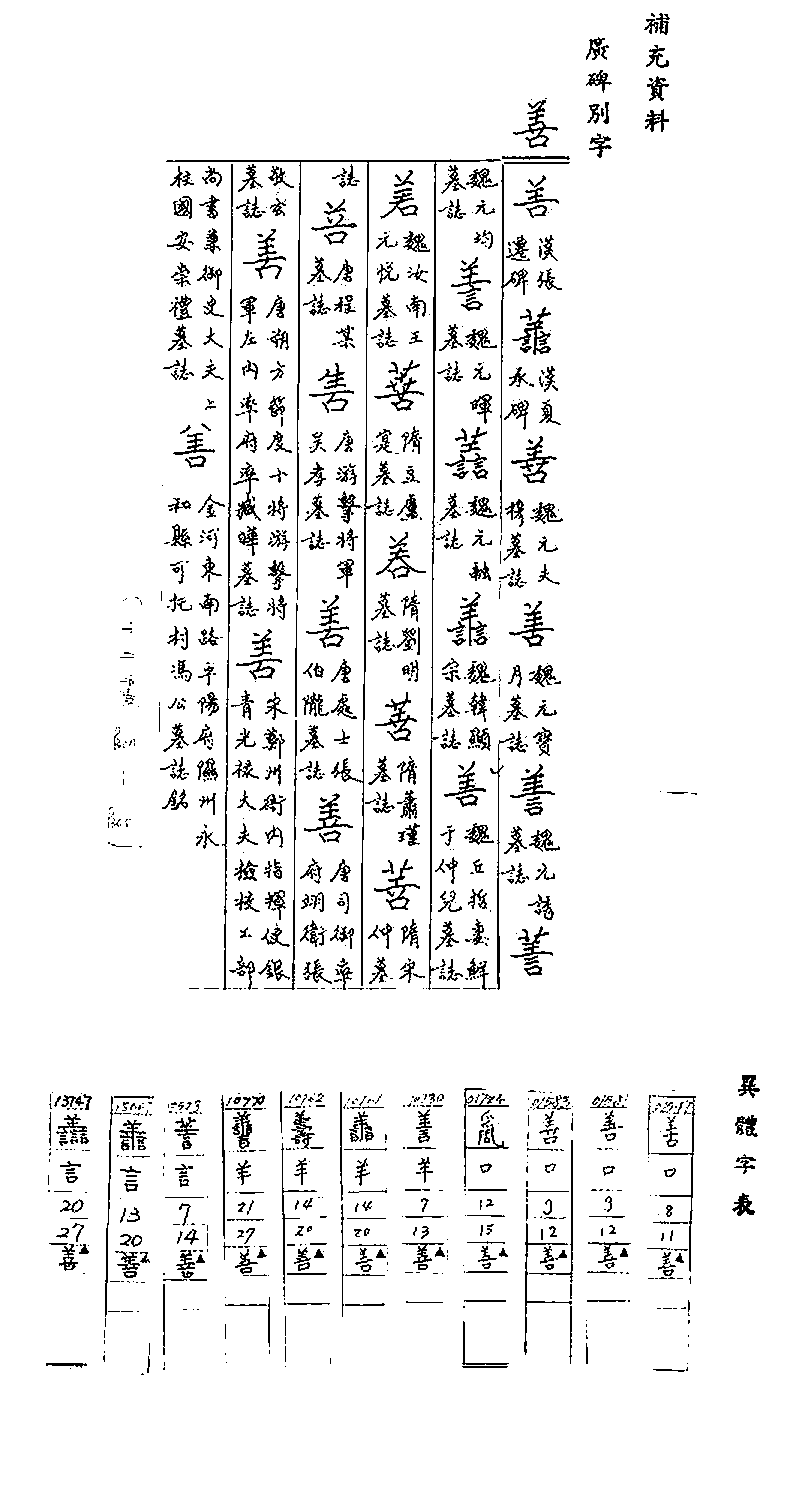 補充資料
廣碑別字
善
善 漢張遷碑 漢夏承碑 魏元夫人穆墓誌 善 魏元寶月墓誌 譱 魏元誘墓誌
魏元均墓誌 魏元暉墓誌 魏元融墓誌 譱 魏韓顯宗墓誌 善 魏丘哲妻鮮于仲兒墓誌
魏汝南王元悅墓誌 隋豆盧寔墓誌 隋劉明墓誌 隋蕭瑾墓誌 隋宋仲墓
誌 唐程某墓誌 唐游擊將軍吴孝墓誌 善 唐處士張伯隴墓誌 善 唐司御率府翊衛張
敬玄墓誌 善 唐朔方節度十將游擊將軍左內率府率臧曄墓誌 善 宋鄭州衙內指揮使銀青光祿大夫檢校工部
尚書兼御史大夫上柱國安崇禮墓誌 金河東南路平陽府隰州永和縣可托村馮公墓誌銘
異體字表
口 8 11 善▲
01581 善 口 9 12 善▲
01583 善 口 9 12 善▲
口 12 15 善▲
善 羊 7 13 善▲
羊 14 20 善▲
羊 14 20 善▲
10770 羊 21 27 善▲
言 7 14 善▲
譱 言 13 20 善▲
13747 言 20 27 善▲